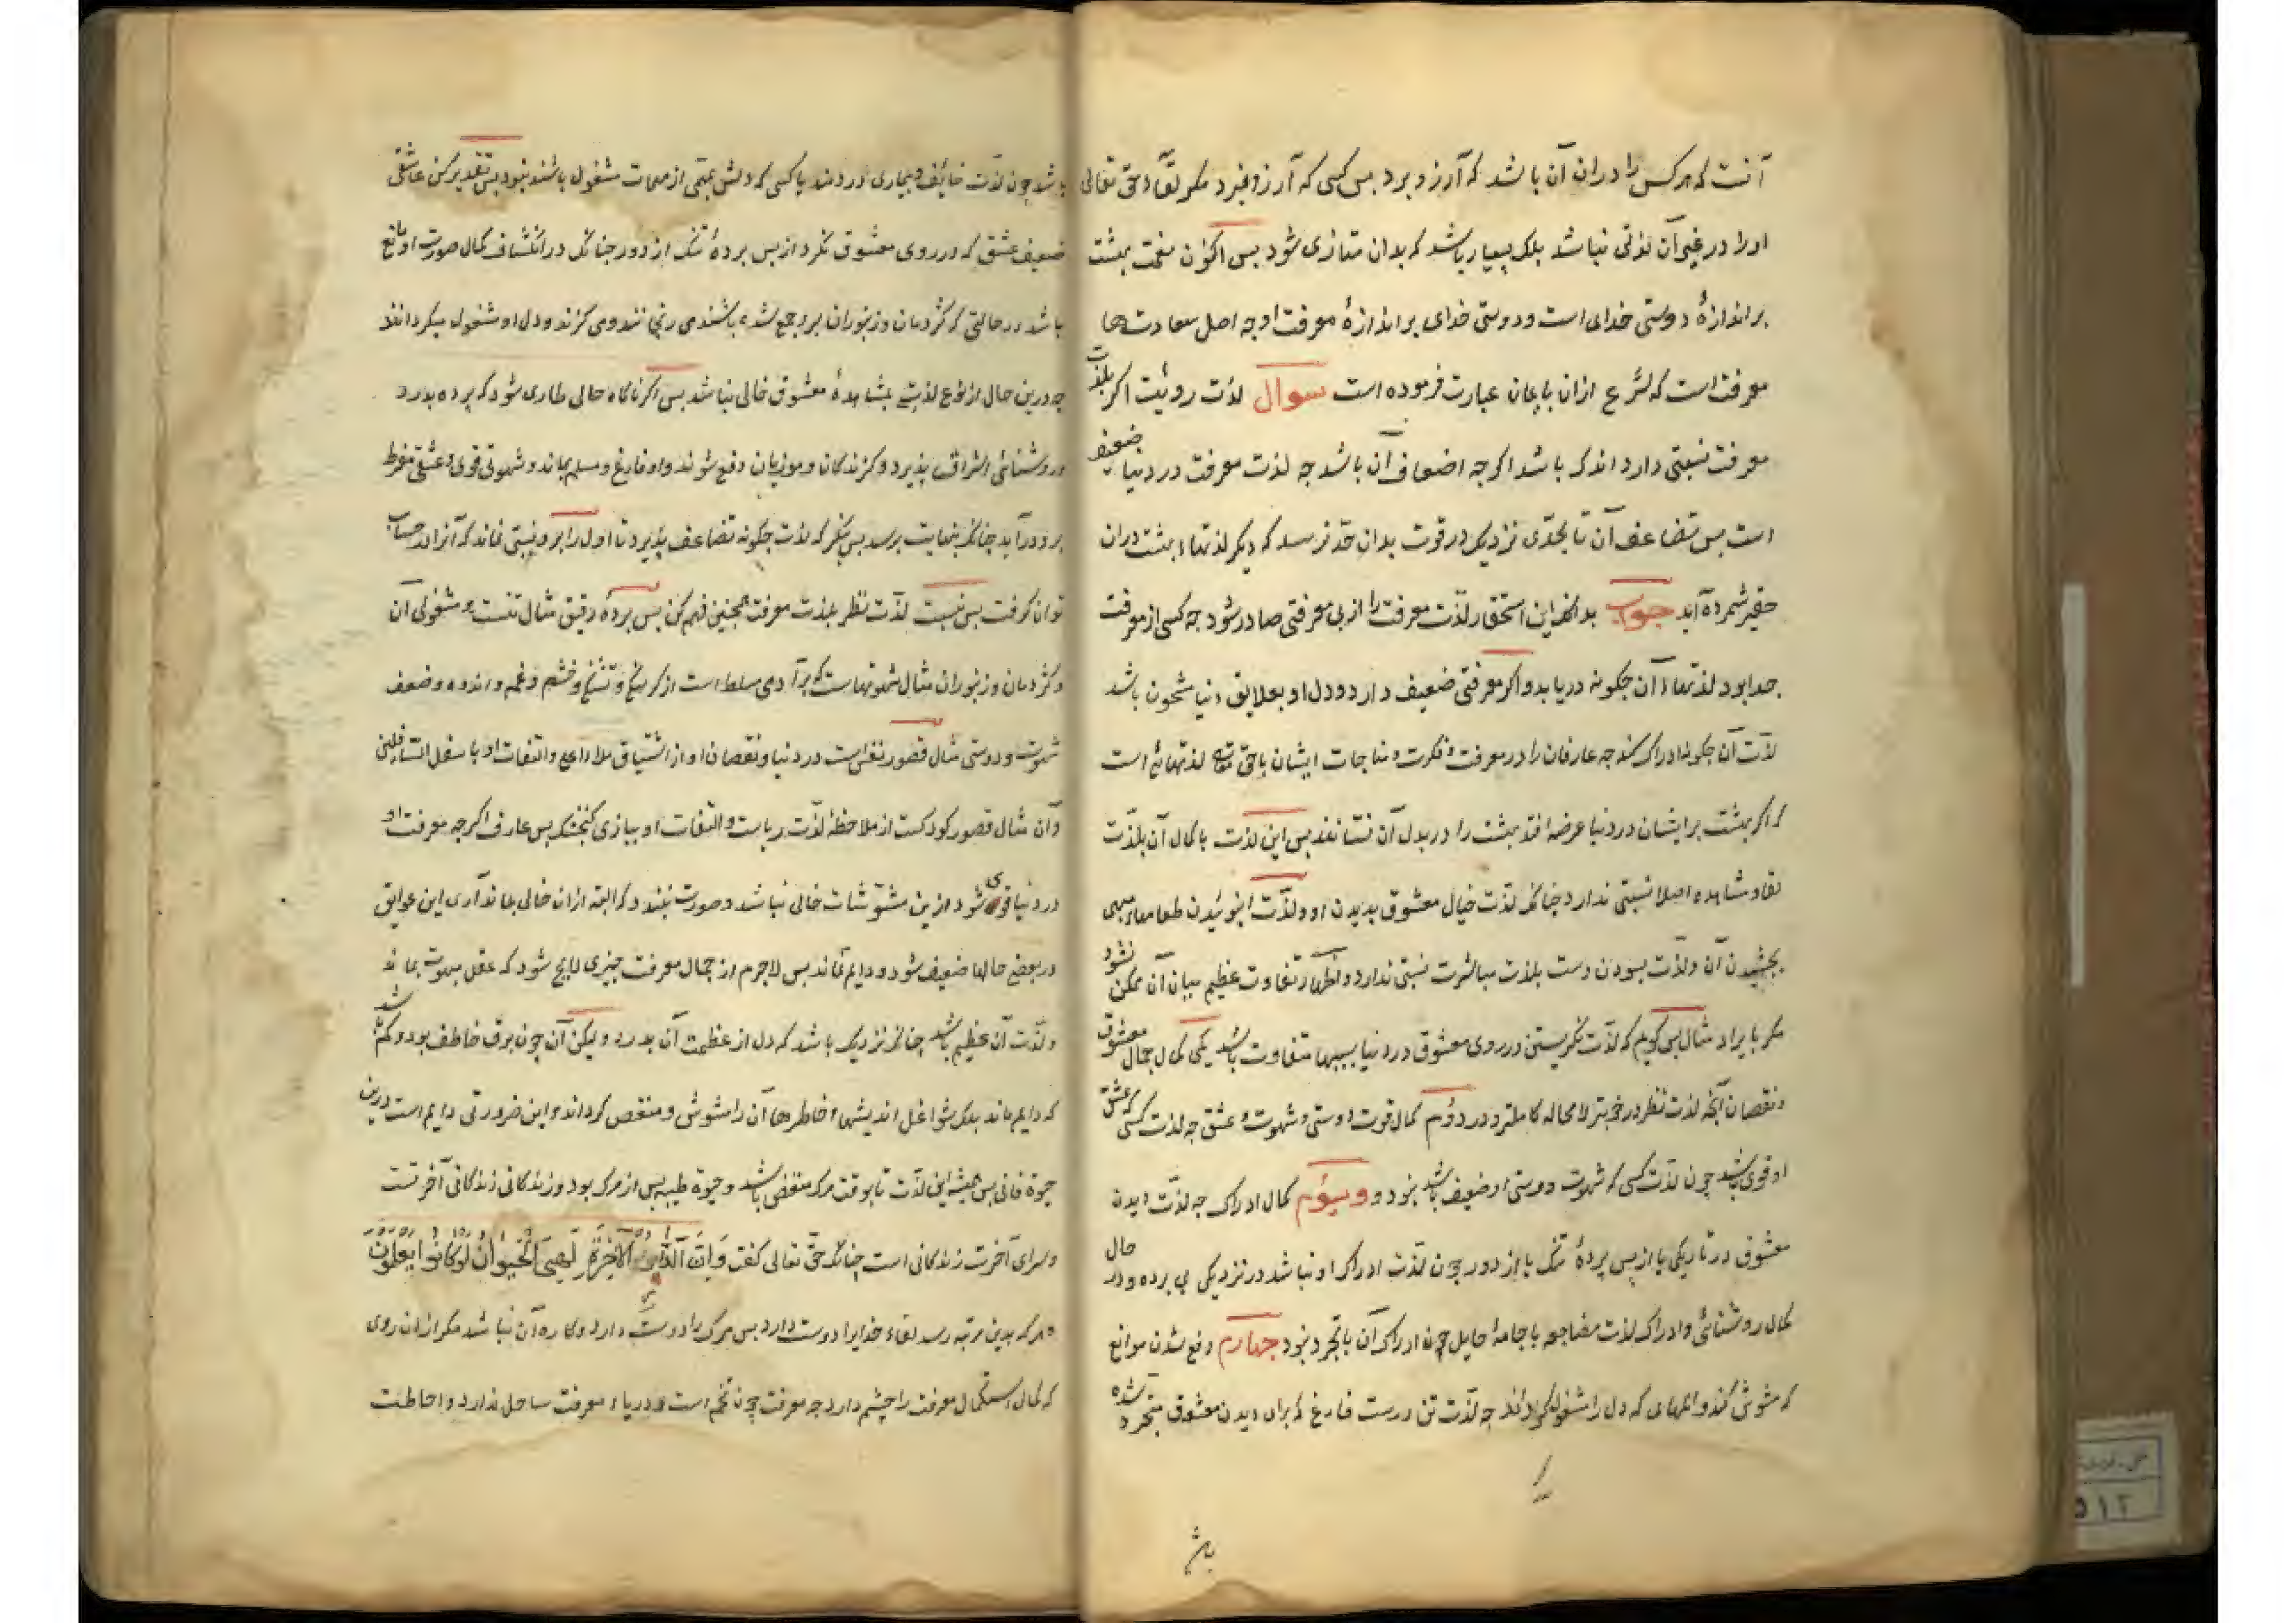 آنست که هر کس را دران آن باشد که آرزو برد بس کسی که آرزو نبرد مکر لقاء حق تعالی
او را در غیر آن لذتی نباشد بلک بسیار باشد که بدان متاذی شود بس اکنون نعمت بهشت
بر اندازهٔ دوستی خدای است و دوستی خدای بر اندازهٔ معرفت او جه اصل سعادتها
معرفت است که شرع ازان بایمان عبارت فرموده است سوال لذت رویت اکر بلذت
معرفت نسبتی دارد اندک باشد اکرجه اضعاف آن باشد جه لذت معرفت در دنیا ضعیف
است بس تضاعف آن تا بحدی نزدیک در قوت بدان حد نرسد که دیکر لذتهاء بهشت دران
حقیر شمرده آید جواب بدانک این استحقار لذت معرفت را از بی معرفتی صادر شود جه کسی از معرفت
جدا بود لذتهاء آن جکونه دریابد و اکر معرفتی ضعیف دارد و دل او بعلایق دنیا مشحون باشد
لذت آن جکونه ادراک کند جه عارفان را در معرفت و فکرت و مناجات ایشان با حق تعالی لذتهائی است
که اکر بهشت بر ایشان در دنیا عرضه افتد بهشت را در بدل آن نستانند بس این لذت با کمال آن بلذت
لقا و مشاهده اصلا نسبتی ندارد جنانک لذت خیال معشوق بدیدن او و لذت انبوئیدن طعامهاء
بجشیدن آن و لذت بسودن دست بلذت مباشرت نسبتی ندارد و اظهار تفاوت عظیم میان آن ممکن نشود
مکر بایراد مثال بس کویم که لذت نکریستن در روی معشوق در دنیا بسببها متفاوت باشد یکی کمال جمال معشوق
و نقصان آنجه لذت نظر در خوبتر لا محاله کاملتر و در دوم کمال قوت دوستی و شهوت و عشق جه لذت کسی که عشق
او قوی باشد جون لذت کسی که شهوت و دوستی او ضعیف باشد نبود و سیوم کمال ادراک جه لذت دیدن
معشوق در تاریکی یا از بس بردهٔ تنک یا از دور جون لذت ادراک او نباشد در نزدیکی بی برده و در حال
کمال روشنائی و ادراک لذت مضاجعه با جامهٔ حایل جون ادراک آن با تجرد نبود جهارم دفع شدن موانع
که مشوش کند و المهای که دل را مشغول کرداند جه لذت تن درست فارغ که برای دیدن معشوق متجرد شده
باشد
باشد جون لذت خائف و بیماری دردمند یا کسی که دلش بمهمی از مهمات مشغول باشد نبود بس تقدیر کن عاشقی
ضعیف عشق که در روی معشوق نکرد از بس بردهٔ تنک از دور جنانک در انکشاف کمال صورت او مانع
باشد در حالتی که کژدمان و زنبوران برو جمع شده باشند می رنجانند و می کزند و دل او مشغول میکردانند
جه درین حال از نوع لذتی بمشاهدهٔ معشوق خالی نباشد بس اکر ناکاه حالی طاری شود که برده بدرد
و روشنائی اشراق بذیرد و کزندکان و موذیان دفع شوند و او فارغ و مسلم بماند و شهوتی قوی و عشقی مفرط
برو درآید جنانک بنهایت برسد بس بنکر که لذت جکونه تضاعف بذیرد تا اول را برو نسبتی نماند که آنرا در حساب
توان کرفت بس نسبت لذت نظر بلذت معرفت همجنین فهم کن بس بردهٔ رقیق مثال تنست و مشغولی آن
و کژدمان و زنبوران مثال شهوتهاست که بر آدمی مسلط است از کرسنکی و تشنکی و خشم و غم و اندوه و ضعف
شهوت و دوستی مثال قصور نفس است در دنیا و نقصان او از اشتیاق ملاء اعلی و التفات او با سفل السافلین
و آن مثال قصور کودکست از ملاحظهٔ لذت ریاست و التفات او ببازی کنجشک بس عارف اکرجه معرفت او
در دنیا قوی شود ازین مشوشات خالی نباشد و صورت نبندد که البته ازان خالی بماند آری این عوایق
در بعضی حالها ضعیف شود و دایم نماند بس لا جرم از جمال معرفت جیزی لایح شود که عقل مبهوت بماند
و لذت آن عظیم باشد جنانک نزدیک باشد که دل از عظمت آن بدرد و لیکن آن جون برق خاطف بود و کم باشد
که دایم ماند بلک شواغل اندیشها و خاطرها آن را مشوش و منغص کرداند و این ضرورتی دایم است درین
حیوة فانی بس همیشه این لذت تا بوقت مرک منغص باشد و حیوة طیبه بس از مرک بود و زندکانی زندکانی آخرتست
و سرای آخرت زندکانی است جنانک حق تعالی کفت وَاِنَّ الدَّارَ الْآخِرَةَ لَهِیَ الْحَیَوانُ لَوْ کانُوا یَعْلَمُونَ
و هر که بدین مرتبه رسد لقاء خدایرا دوست دارد بس مرک را دوست دارد و کاره آن نباشد مکر ازان روی
که کمال استکمال معرفت را جشم دارد جه معرفت جون تخم است و دریاء معرفت ساحل ندارد و احاطت
۵۱۲